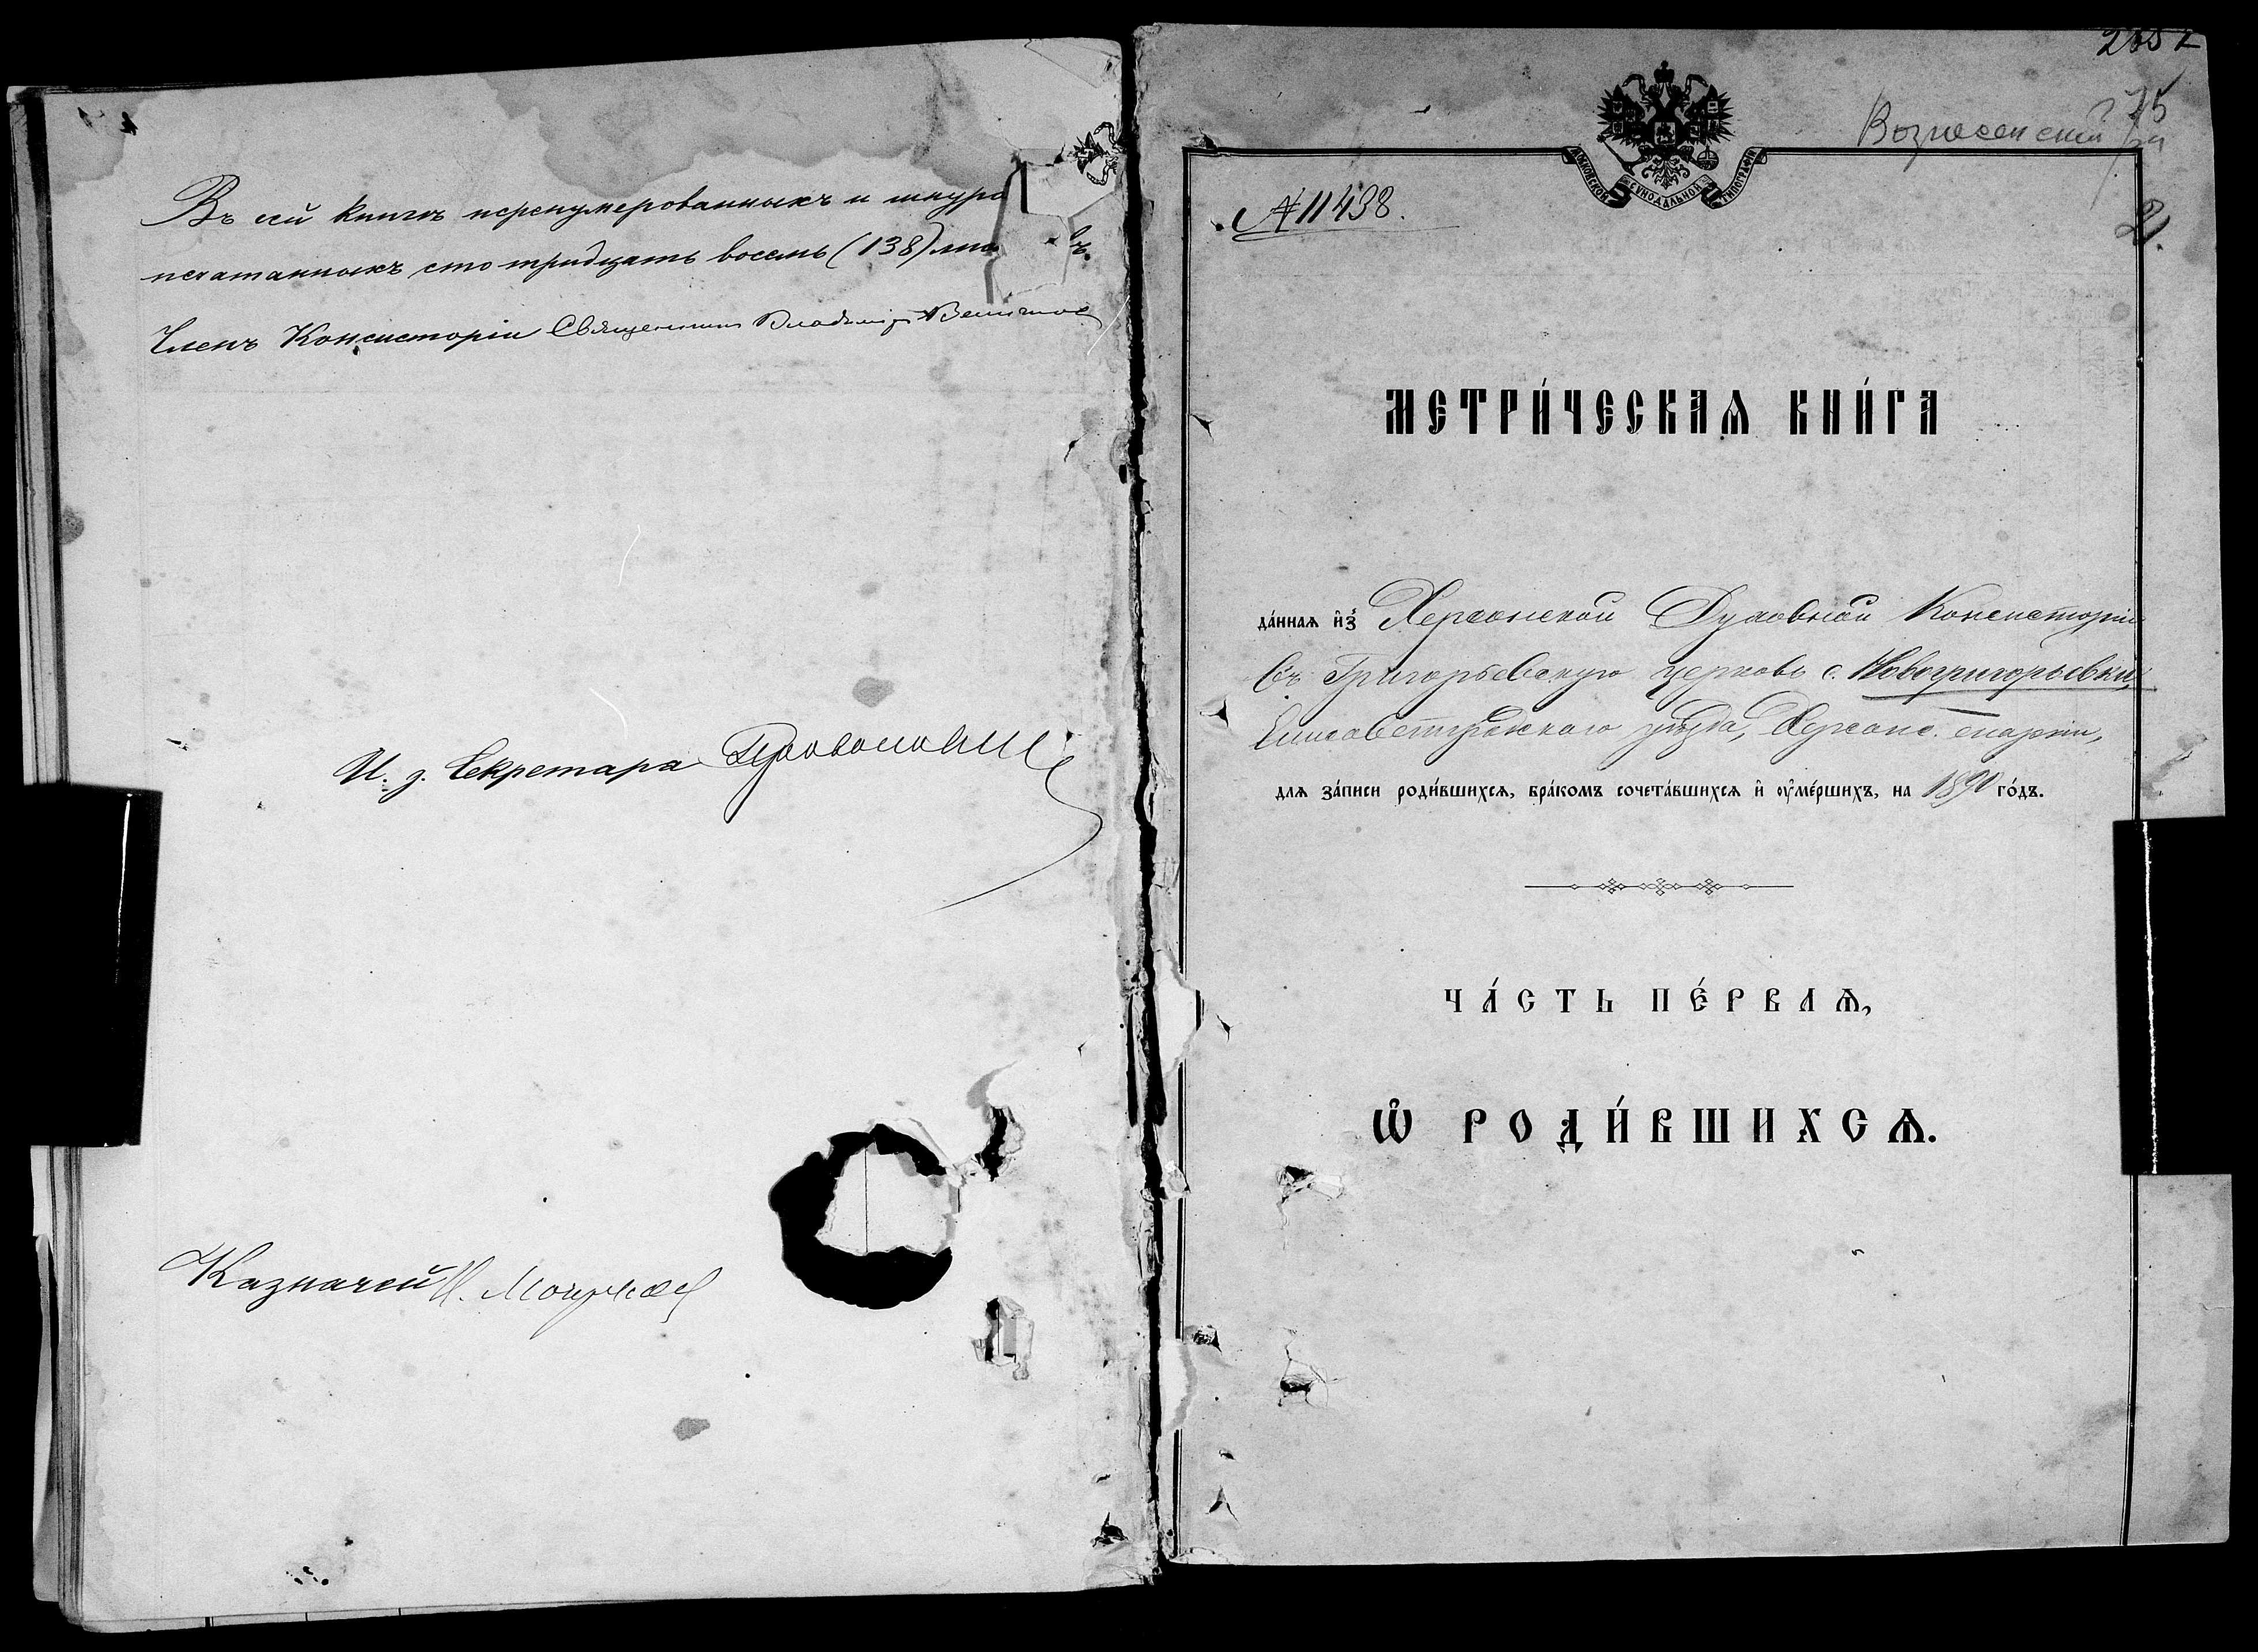 Въ сей книгѣ перенумерованныхъ и шнуро
печатанныхъ сто тридцать восемь (138) лис въ.
Членъ Консисторіи Священникъ Владиміръ
И. д. Секретаря
Казначей И.
Вознесенский
75
МОСКОВСКОЙ СѴНОДАЛЬНОЙ ТИПОГРАФІИ
№ 11438.
21.
МЕТРИ́ЧЕСКАѦ КНИ́ГА
да́ннаѧ и҆з̾ Херсонской Духовной Консисторіи
въ Григорьевскую церковь с. Новогригорьевки,
Елисаветградскаго уѣзда, Херсонс. епархіи,
длѧ за́писи роди́вшихсѧ, бра́комъ сочета́вшихсѧ и҆ ᲂу҆ме́ршихъ, на 1890 го́дъ.
ЧА́СТЬ ПЕ́РВАѦ,
Ѡ҆ РОДИ́ВШИХСѦ.